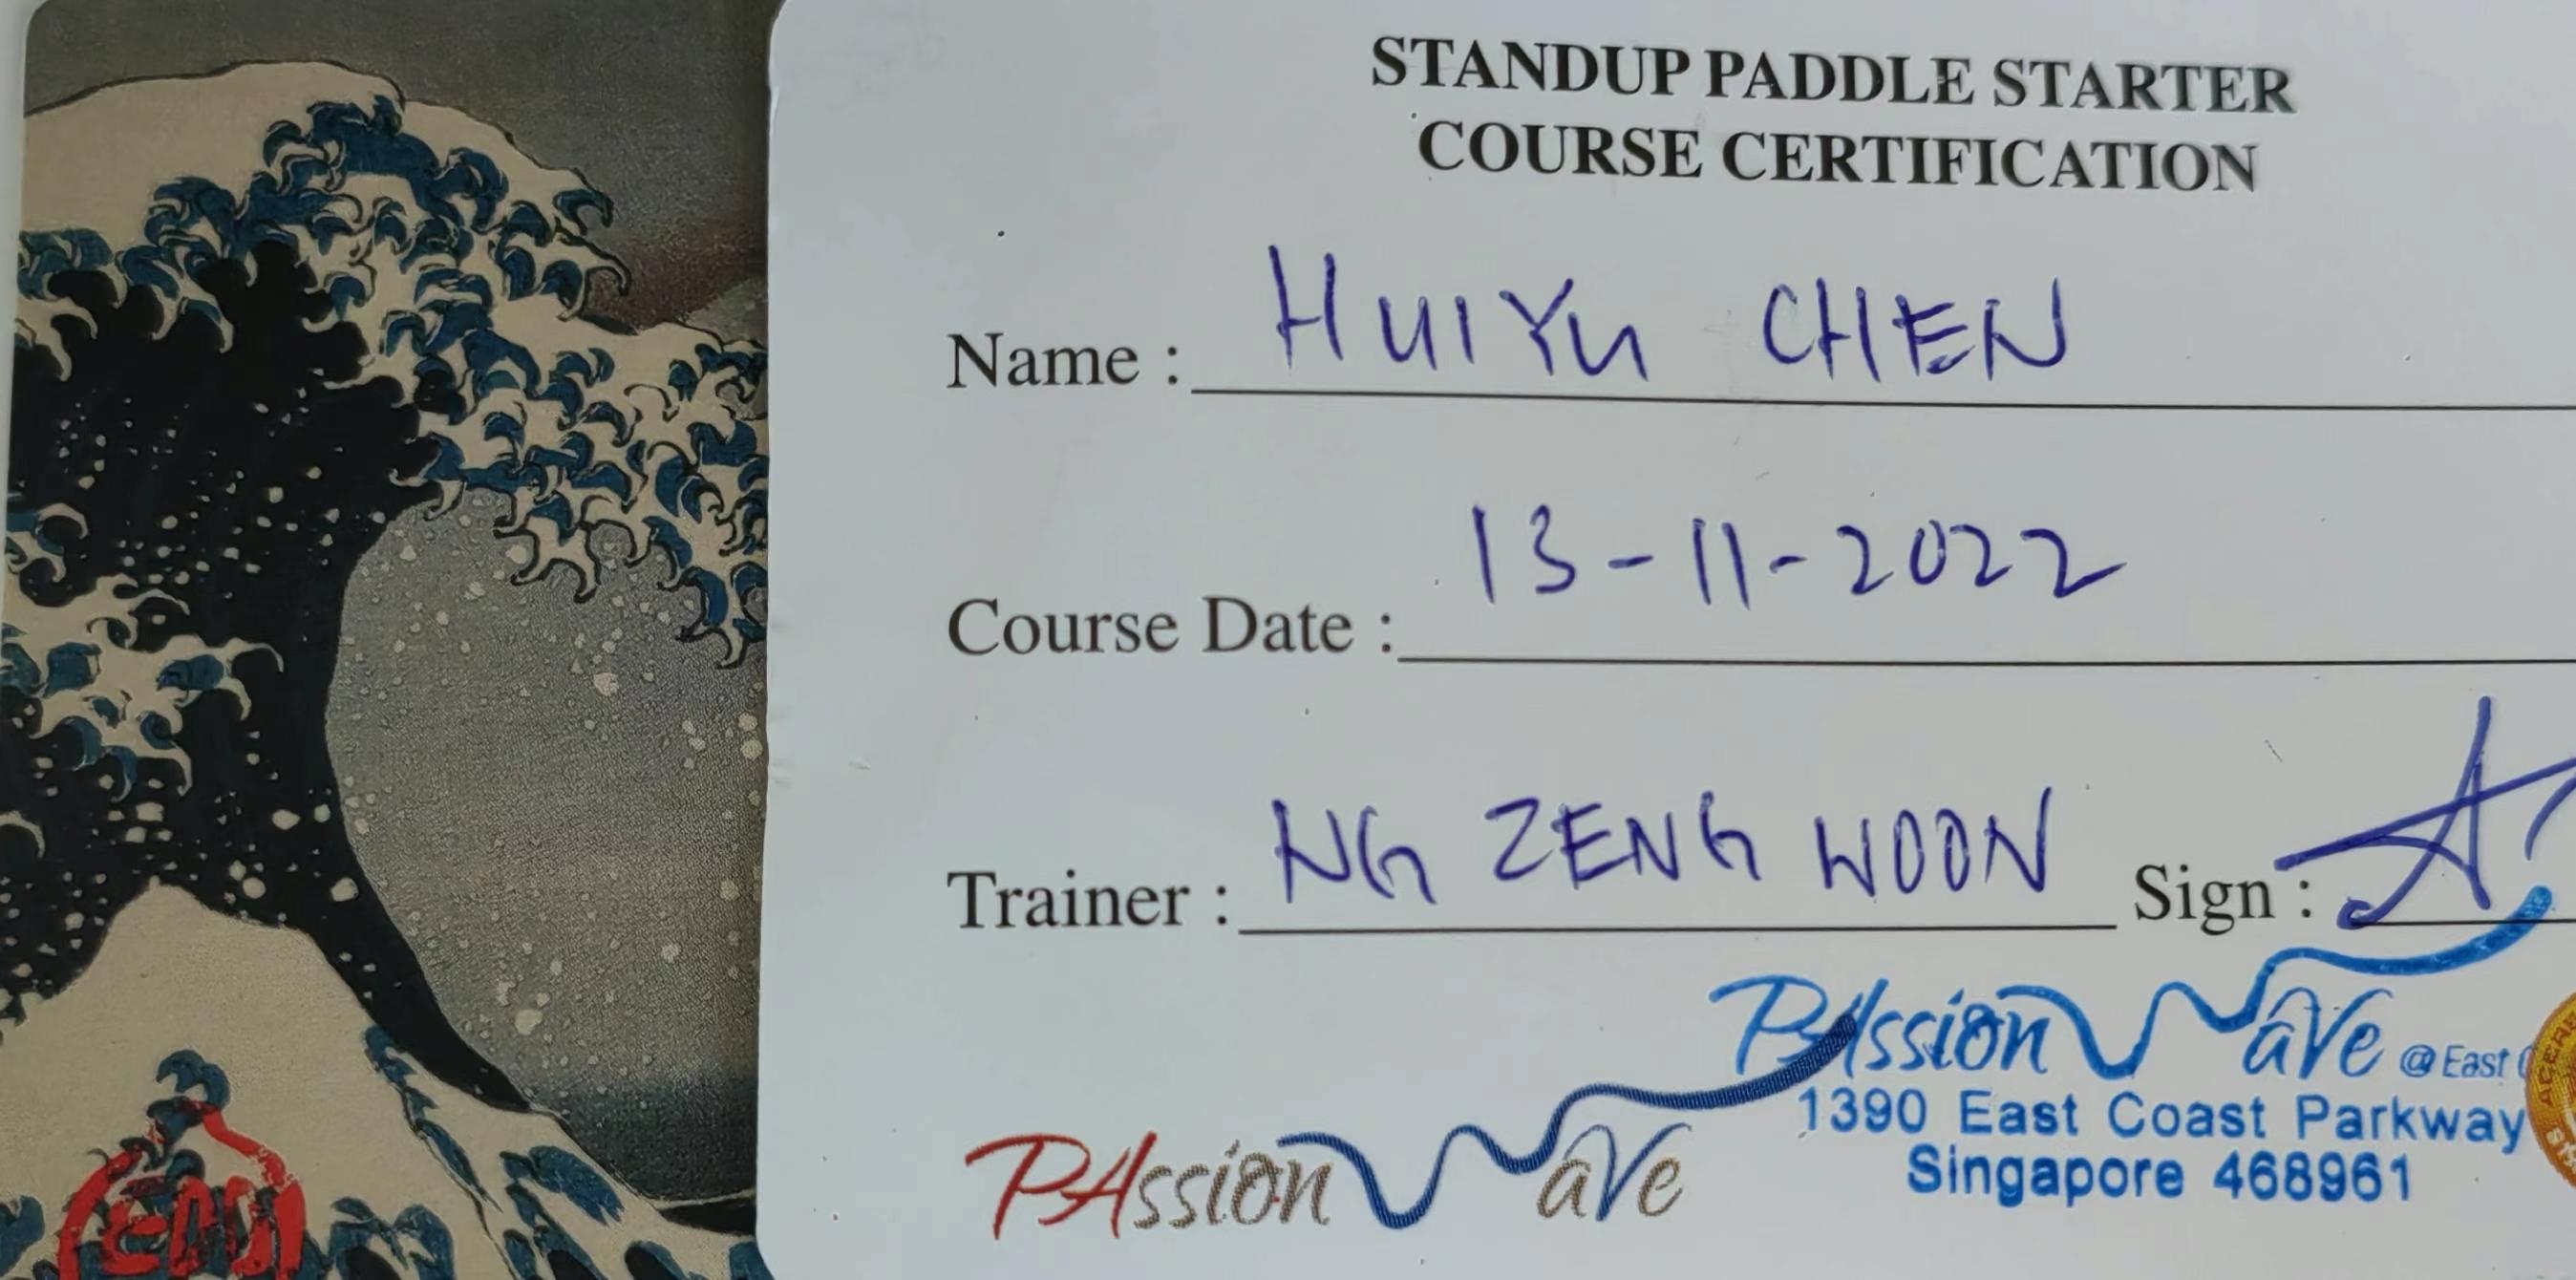 STANDUP PADDLE STARTER
COURSE CERTIFICATION
Name : HUIYU CHEN
Course Date : 13-11-2022
Trainer : NG ZENG WOON Sign :
PAssion WaVe @ East
1390 East Coast Parkway
Singapore 468961
PAssion WaVe